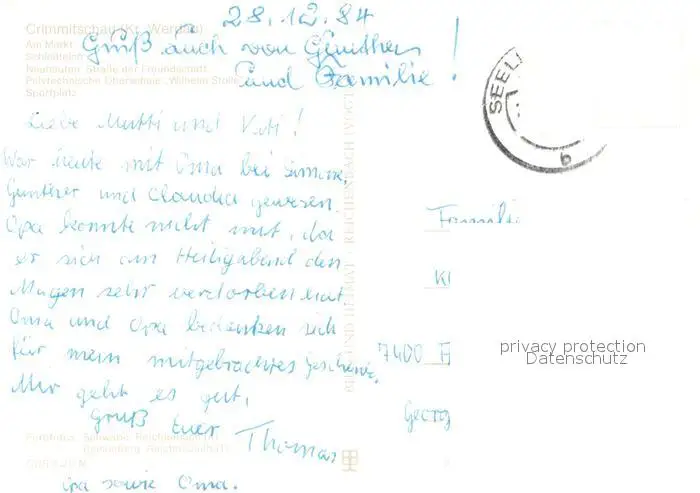 28.12.84
Crimmitschau (Kr. Werdau)
Gruß auch von Günther
Am Markt
und Familie!
Neubauten Straße der Freundschaft
Polytechnische Oberschule "Wilhelm Stolle"
Sportplatz
SEEL
b
Liebe Mutti und Vati!
War heute mit Oma bei Simone,
Günther und Claudia gewesen.
Opa konnte nicht mit, da
er sich am Heiligabend den
Magen sehr verdorben hat.
Oma und Opa bedanken sich
für mein mitgebrachtes Geschenk.
Mir geht es gut.
Gruß Euer Thomas
Opa sowie Oma.
BILD UND HEIMAT REICHENBACH (VOGTL
Famili
7400
Georg
privacy protection
Datenschutz